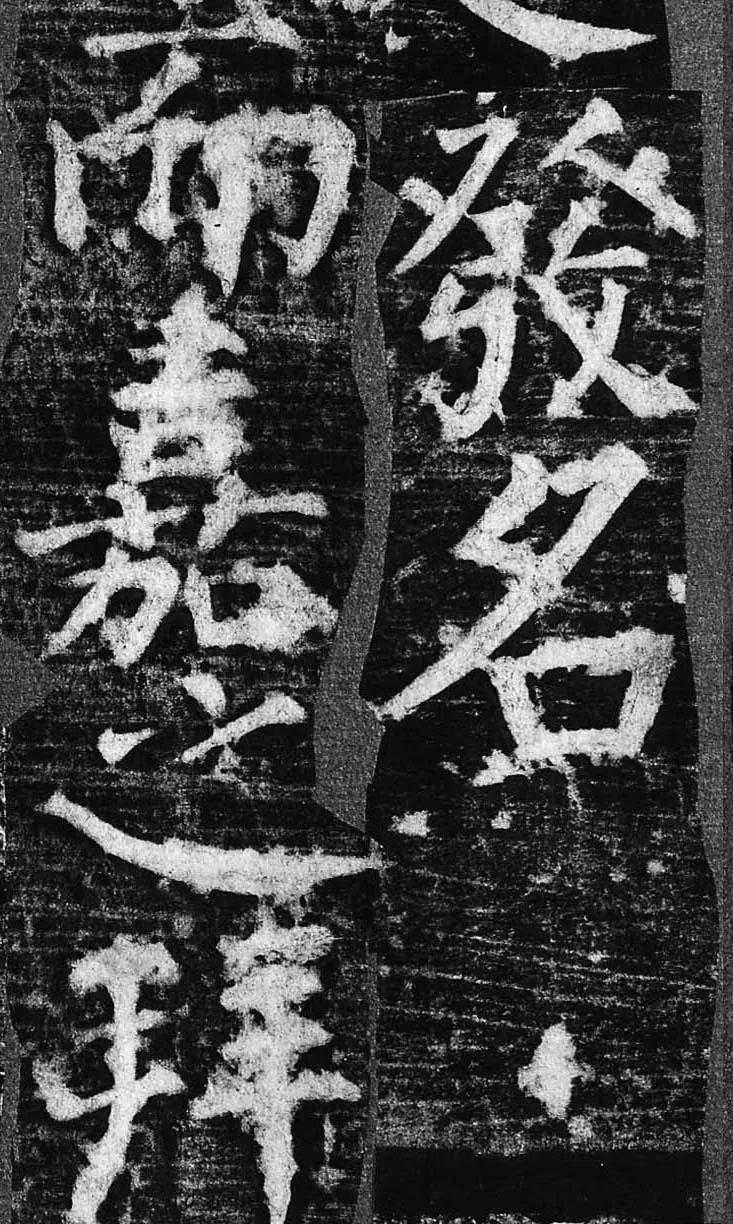 發名
而嘉之拜